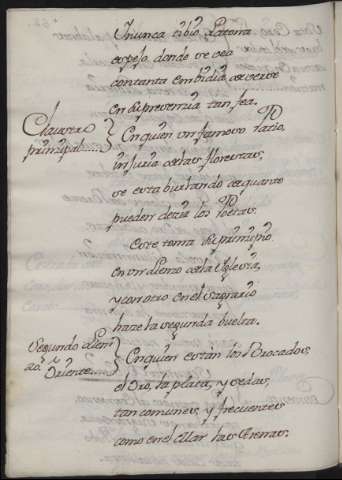 Nunca tibio, Latona
espejo, donde se vea
con tanta embidia de verse
en su presencia tan fea.
Claustro
principal.....
En quien un famoso Patio,
injuria de las florestas,
se esta burlando de quanto
pueden dezir los Poetas.
Este toma su principio
en un lienzo de la Iglesia,
y con otro en el Sagrario
haze la segunda buelta.
Segundo Lien
zo. Oriente.....
En quien estan los Brocados,
el Oro, la plata, y sedas,
tan comunes, y frecuentes
como en el Mar las Arenas.